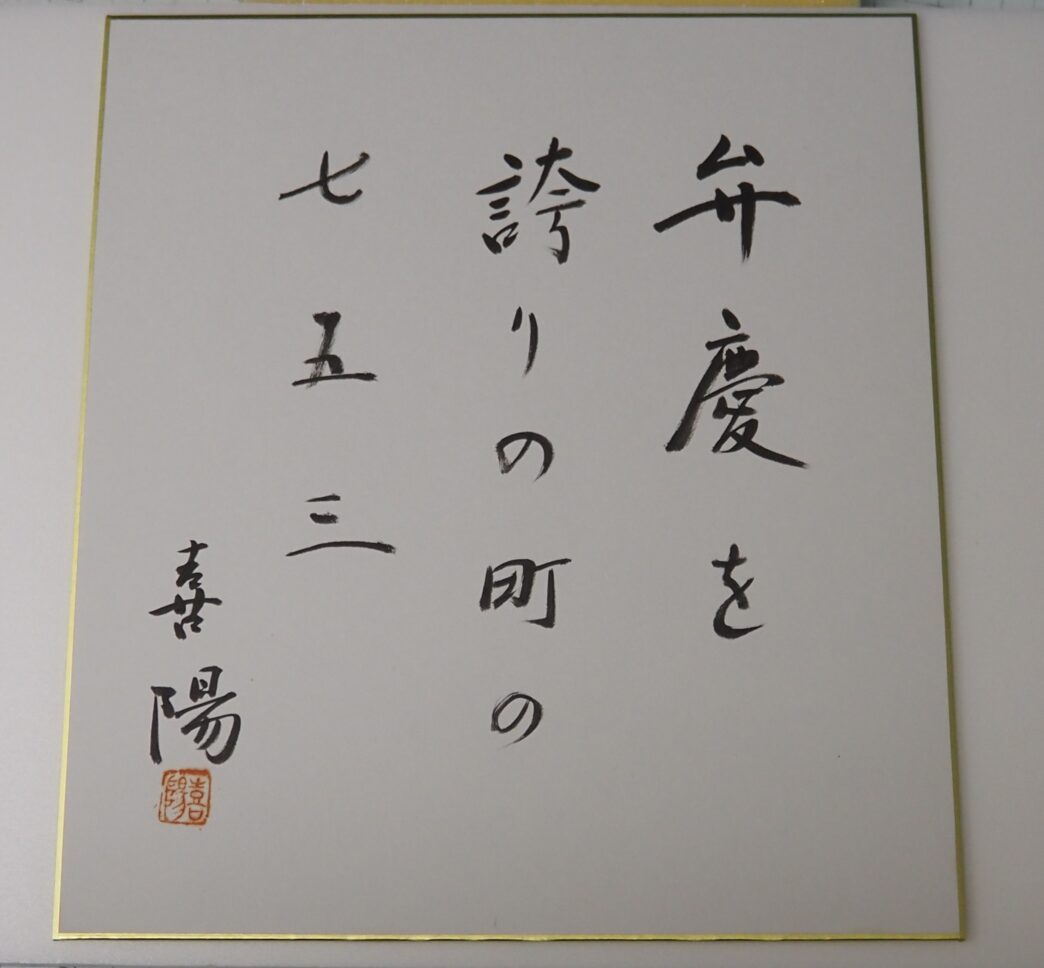 弁慶を
誇りの町の
七五三
喜陽
喜陽